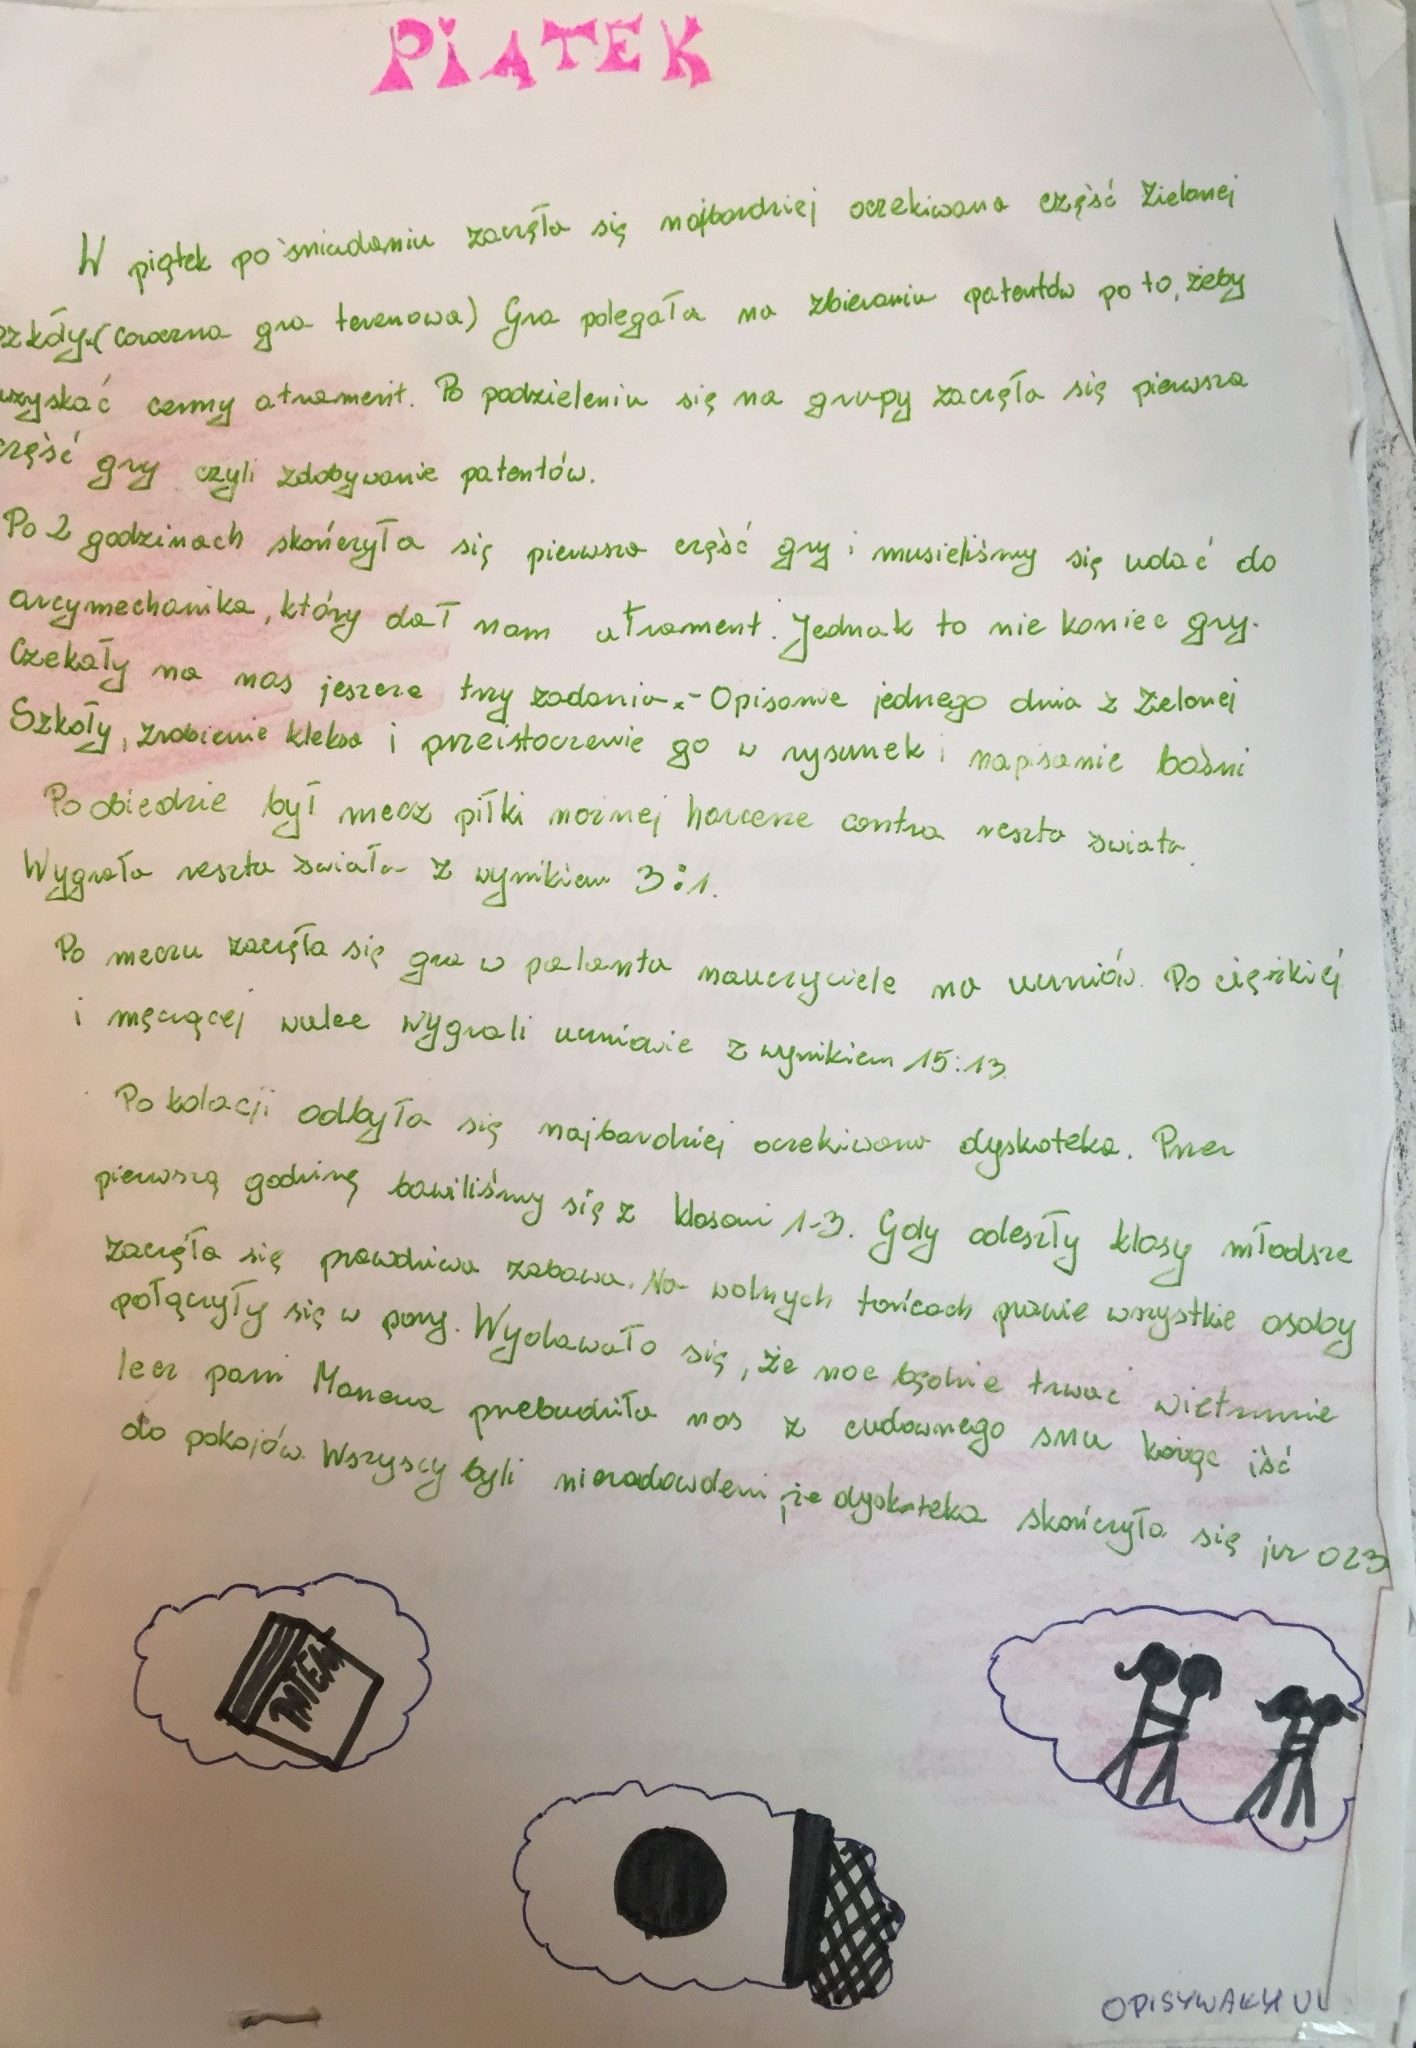 PIĄTEK
W piątek po śniadaniu zaczęła się najbardziej oczekiwana część Zielonej
szkoły. (coroczna gra terenowa) Gra polegała na zbieraniu patentów po to, żeby
uzyskać cenny atrament. Po podzieleniu się na grupy zaczęła się pierwsza
część gry czyli zdobywanie patentów.
Po 2 godzinach skończyła się pierwsza część gry i musieliśmy się udać do
arcymechanika, który dał nam atrament. Jednak to nie koniec gry.
Czekały na nas jeszcze trzy zadania:- Opisanie jednego dnia z Zielonej
Szkoły, zrobienie kleksa i przeistoczenie go w rysunek i napisanie baśni
Po obiedzie był mecz piłki nożnej harcerze contra reszta świata.
Wygrała reszta świata z wynikiem 3:1.
Po meczu zaczęła się gra w palanta nauczyciele na uczniów. Po ciężkiej
i męczącej walce wygrali uczniowie z wynikiem 15:13
Po kolacji odbyła się najbardziej oczekiwana dyskoteka. Przez
pierwszą godzinę bawiliśmy się z klasami 1-3. Gdy odeszły klasy młodsze
zaczęła się prawdziwa zabawa. Na wolnych tańcach prawie wszystkie osoby
połączyły się w pary. Wydawało się, że noc będzie trwać wietrznie
lecz pani prebudziła nas z cudownego snu każąc iść
do pokojów. Wszyscy byli niezadowoleni, że dyskoteka skończyła się już o 23
PATENT